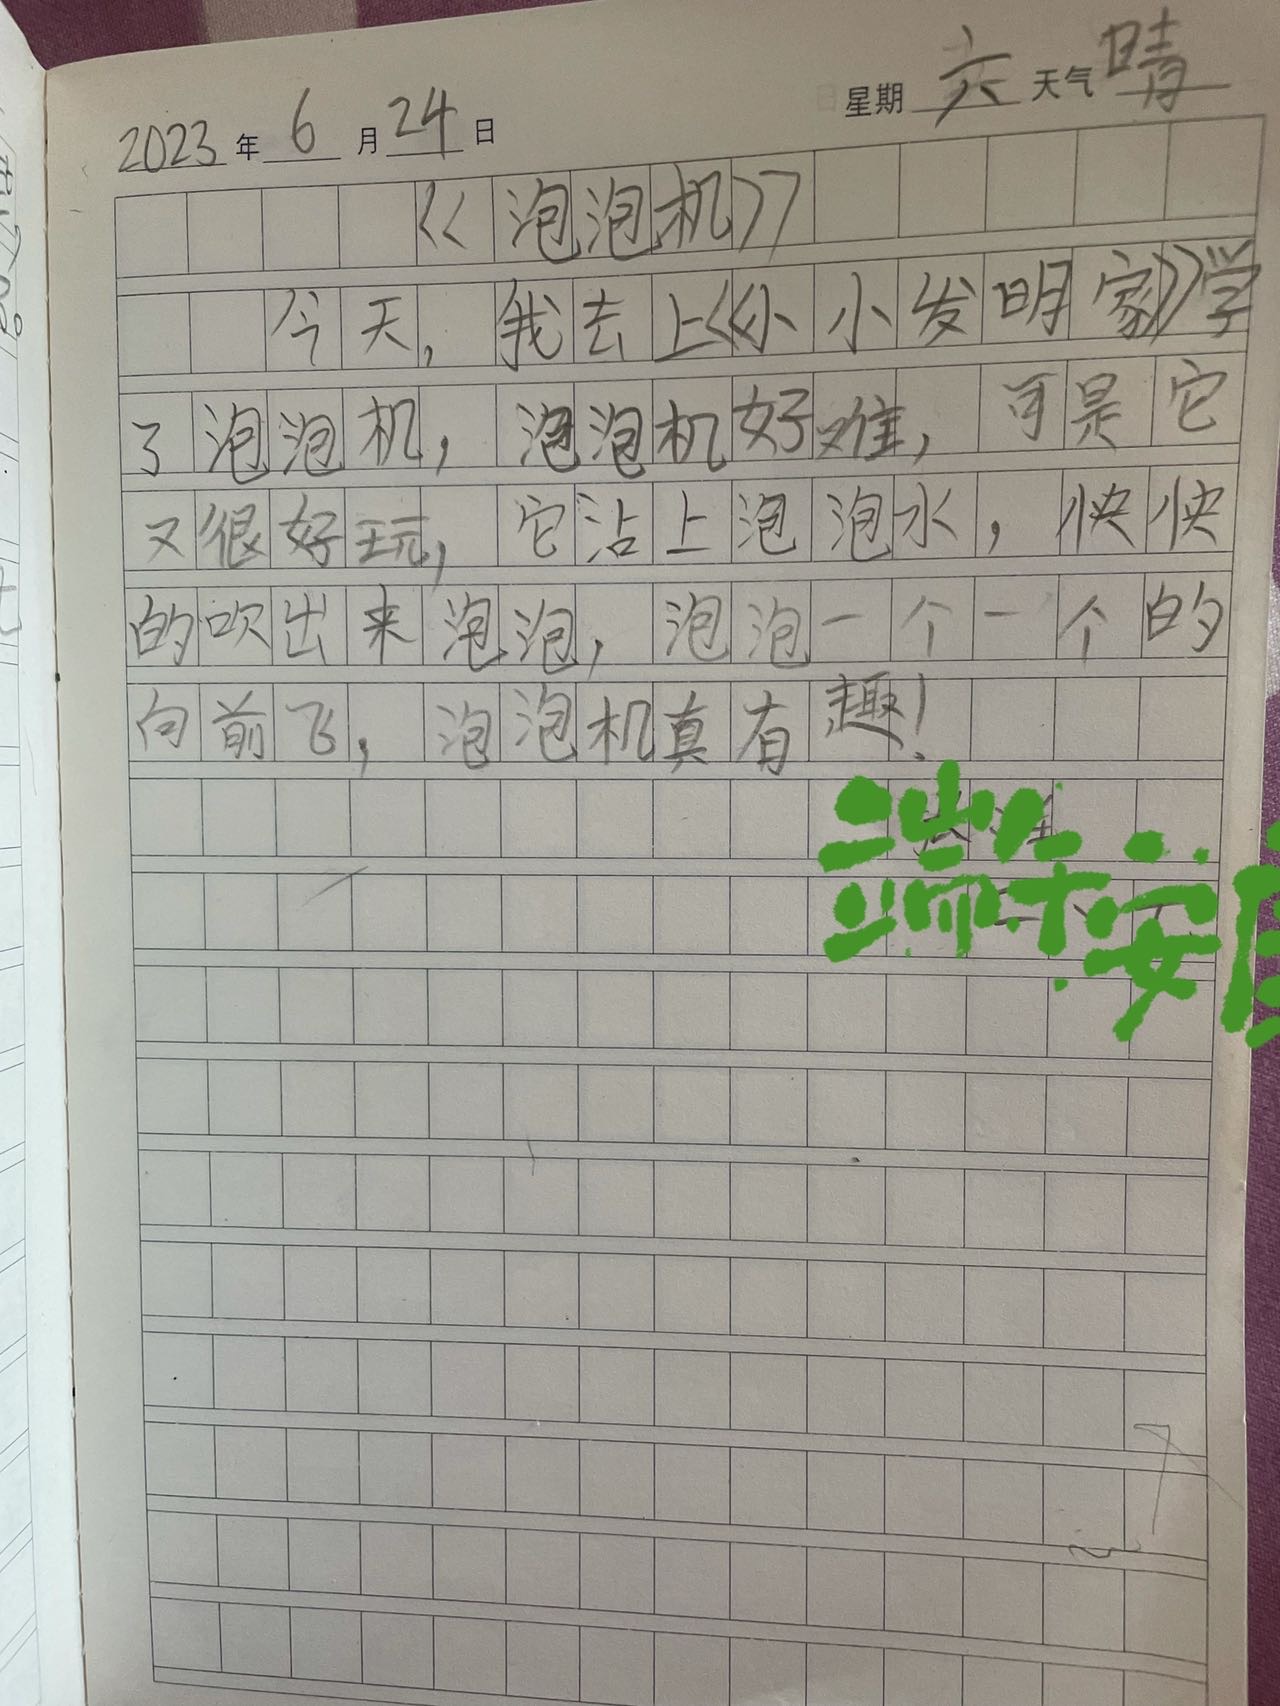 2023年6月24日 星期六 天气晴
《泡泡机》
今天，我去上《小小发明家》学
了泡泡机，泡泡机好难，可是它
又很好玩，它沾上泡泡水，快快
的吹出来泡泡，泡泡一个一个的
向前飞，泡泡机真有趣！
端午安